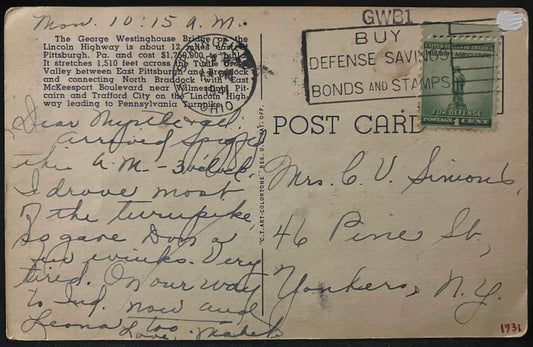 Mon. 10:15 A.M.
The George Westinghouse Bridge on the
Lincoln Highway is about 12 miles east of
Pittsburgh, Pa. and cost $1,750,000 to build.
It stretches 1,510 feet across the Turtle Creek
Valley between East Pittsburgh and
and connecting North Braddock with East
McKeesport Boulevard near Wilmerding, Pit-
cairn and Trafford City on the Lincoln High-
way leading to Pennsylvania Turnpike.
Dear Myrtle and
arrived
this A.M. - 3 o'clock.
I drove most
of the turnpike,
so gave Don a
few winks. Very
tired. On our way
to Ind. now and
Leona too.
Love, Mabel
"C.T. ART-COLORTONE" REG. U.S. PAT. OFF.
OHIO
GWB1
BUY
DEFENSE SAVINGS
BONDS AND STAMPS
UNITED STATES OF AMERICA
FOR DEFENSE
POSTAGE 1 CENT
POST CARD
Mrs. C. V. Simons,
46 Pine St.,
Yonkers, N.Y.
1931